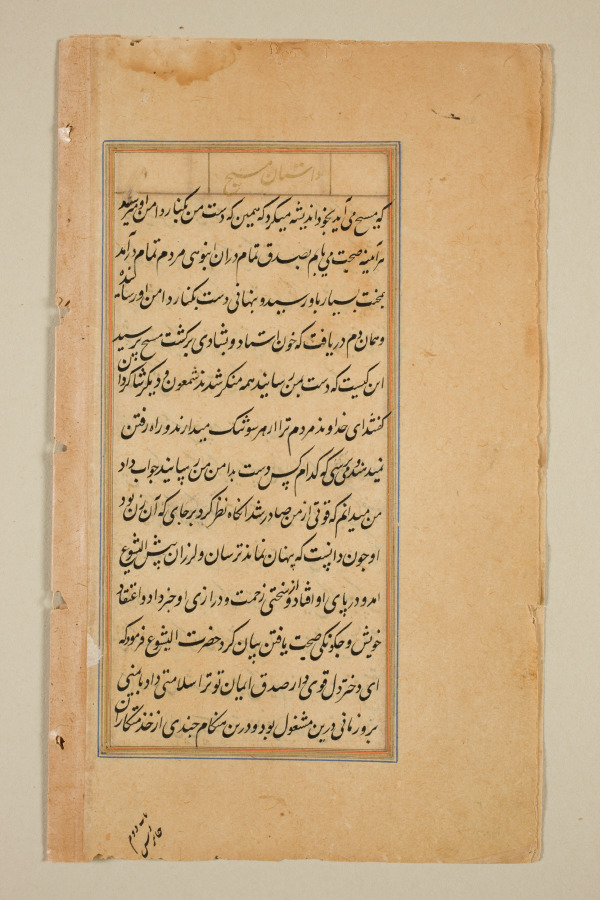 داستان مسیح
که مسیح می آید بخود اندیشه میکرد که همین که دست من بکنار دامن او میرسد
هرآینه صحت می یابم بصدق تمام دران انبوهی مردم تمام درآمد
بمحنت بسیار باو رسید و پنهانی دست بکنار دامن او رسانید
و همان دم دریافت که خون استاد و بشادی برکشت مسیح پرسید
این کیست که دست بمن رسانید همه منکر شدند شمعون و دیکر شاکردان
کفتند ای خداوند مردم ترا از هر سو تنک میدارند و راه رفتن
نمیدهند و می پرسی که کدام کس دست بدامن من رسانید جواب داد
من میدانم که قوتی از من صادر شد انکاه نظر کرد بر جای که آن زن بود
او چون دانست که پنهان نماند ترسان و لرزان پیش الیشوع
امد و در پای او افتاد و از سختی زحمت و درازی او خبر داد و اعتقاد
خویش و چکونکی صحت یافتن بیان کرد حضرت الیشوع فرمود که
ای دختر دل قوی دار صدق ایمان تو ترا سلامتی داد
برو زمانی درین مشغول بود و درین هنکام چندی از خدمتکاران